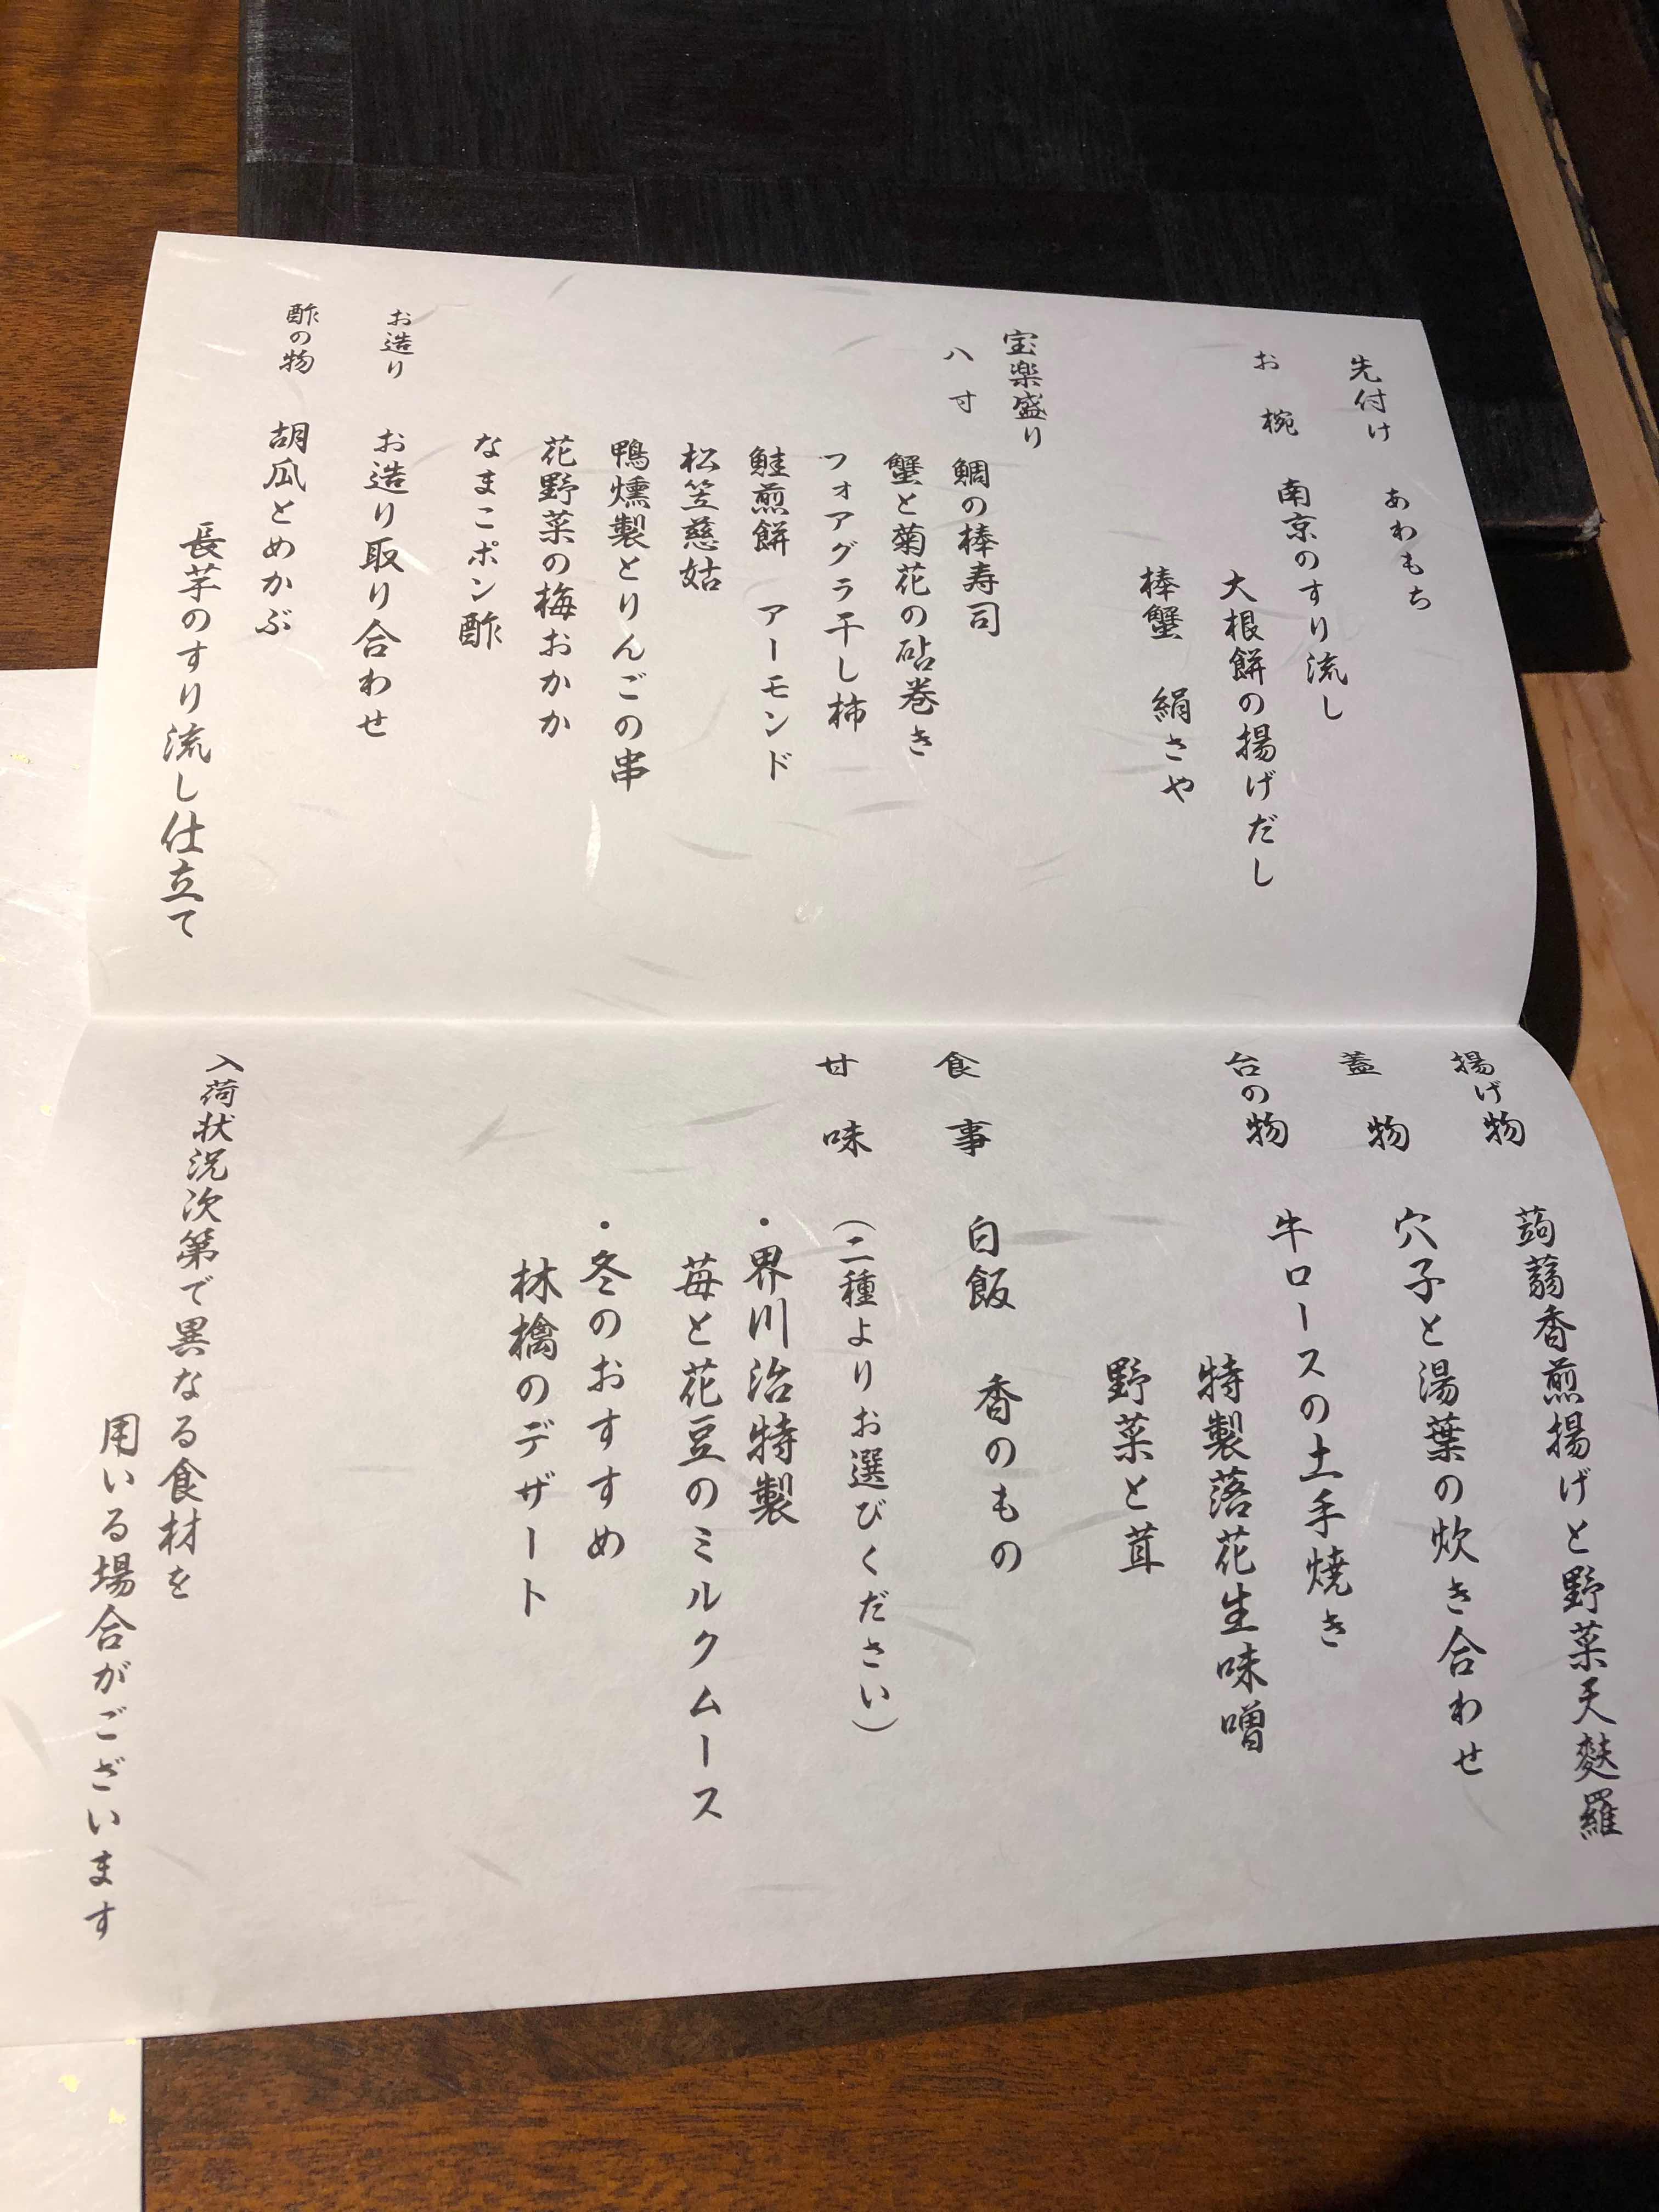 先付け　あわもち
お椀　南京のすり流し
大根餅の揚げだし
棒蟹　絹さや
宝楽盛り
八寸　鯛の棒寿司
蟹と菊花の砧巻き
フォアグラ干し柿
鮭煎餅　アーモンド
松笠慈姑
鴨燻製とりんごの串
花野菜の梅おかか
なまこポン酢
お造り　お造り取り合わせ
酢の物　胡瓜とめかぶ
長芋のすり流し仕立て
揚げ物　蒟蒻香煎揚げと野菜天麩羅
蓋物　穴子と湯葉の炊き合わせ
台の物　牛ロースの土手焼き
特製落花生味噌
野菜と茸
食事　白飯　香のもの
甘味　（二種よりお選びください）
・界川治特製
苺と花豆のミルクムース
・冬のおすすめ
林檎のデザート
入荷状況次第で異なる食材を
用いる場合がございます